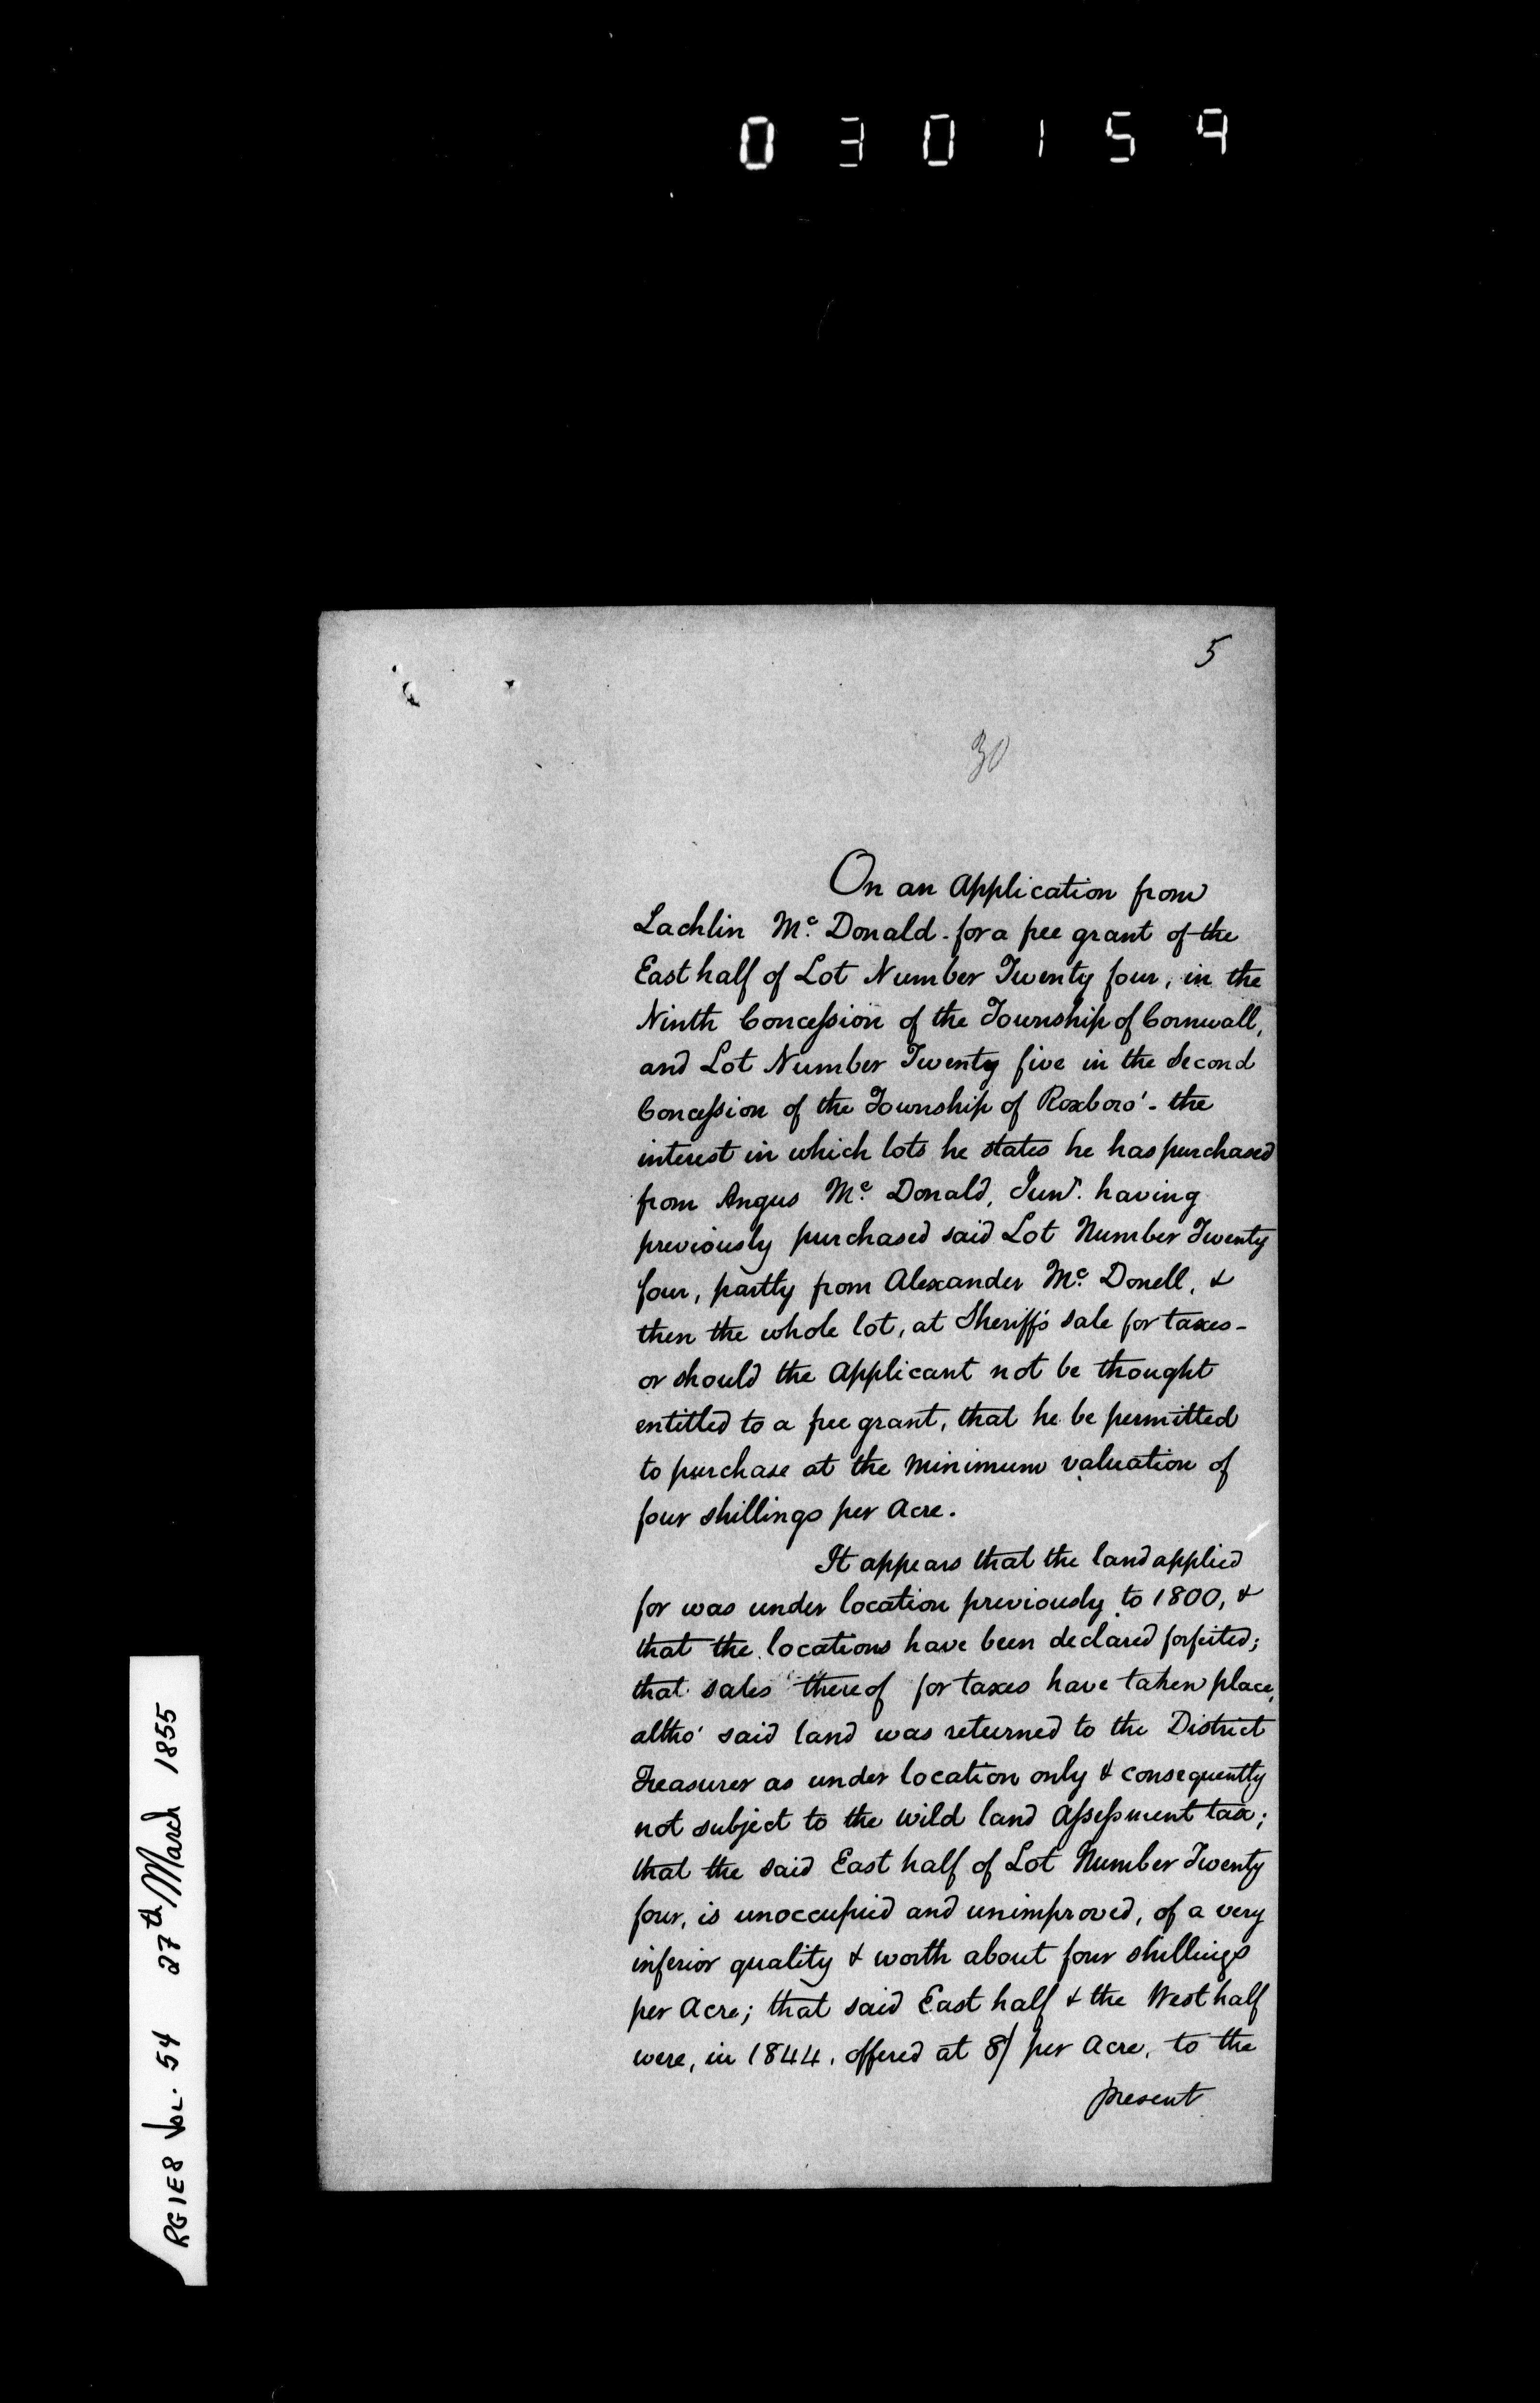 030159
5
30
On an Application from
Lachlin Mc. Donald - for a free grant of the
East half of Lot Number Twenty four, in the
Ninth Concession of the Township of Cornwall,
and Lot Number Twenty five in the Second
Concession of the Township of Roxboro' - the
interest in which lots he states he has purchased
from Angus Mc. Donald, Junr. having
previously purchased said Lot Number Twenty
four, partly from Alexander Mc. Donell, &
then the whole lot, at Sheriff's sale for taxes -
or should the Applicant not be thought
entitled to a free grant, that he be permitted
to purchase at the minimum valuation of
four shillings per Acre.
It appears that the land applied
for was under location previously to 1800, &
that the locations have been declared forfeited;
that sales thereof for taxes have taken place,
altho' said land was returned to the District
Treasurer as under location only & consequently
not subject to the wild land Assessment tax;
that the said East half of Lot Number Twenty
four, is unoccupied and unimproved, of a very
inferior quality & worth about four shillings
per Acre; that said East half & the West half
were, in 1844, offered at 8/ per Acre, to the
present
RG1E8 Vol. 54 27th March 1855